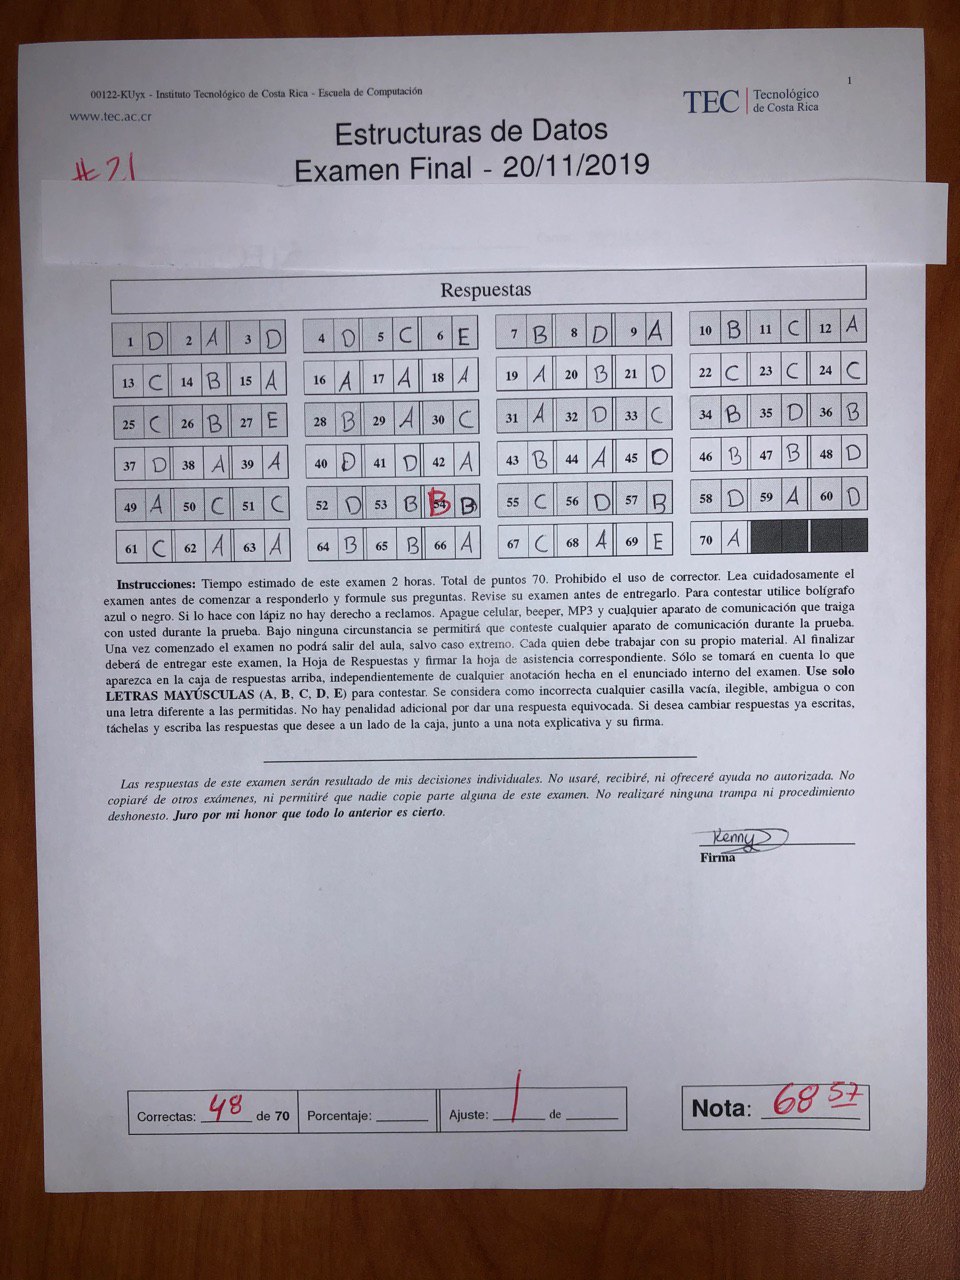 1
00122-KUyx - Instituto Tecnológico de Costa Rica - Escuela de Computación
www.tec.ac.cr
TEC | Tecnológico de Costa Rica
Estructuras de Datos
Examen Final - 20/11/2019
#21
Respuestas
1 D 2 A 3 D 4 D 5 C 6 E 7 B 8 D 9 A 10 B 11 C 12 A
13 C 14 B 15 A 16 A 17 A 18 A 19 A 20 B 21 D 22 C 23 C 24 C
25 C 26 B 27 E 28 B 29 A 30 C 31 A 32 D 33 C 34 B 35 D 36 B
37 D 38 A 39 A 40 D 41 D 42 A 43 B 44 A 45 D 46 B 47 B 48 D
49 A 50 C 51 C 52 D 53 B 54 B B 55 C 56 D 57 B 58 D 59 A 60 D
61 C 62 A 63 A 64 B 65 B 66 A 67 C 68 A 69 E 70 A
Instrucciones: Tiempo estimado de este examen 2 horas. Total de puntos 70. Prohibido el uso de corrector. Lea cuidadosamente el
examen antes de comenzar a responderlo y formule sus preguntas. Revise su examen antes de entregarlo. Para contestar utilice bolígrafo
azul o negro. Si lo hace con lápiz no hay derecho a reclamos. Apague celular, beeper, MP3 y cualquier aparato de comunicación que traiga
con usted durante la prueba. Bajo ninguna circunstancia se permitirá que conteste cualquier aparato de comunicación durante la prueba.
Una vez comenzado el examen no podrá salir del aula, salvo caso extremo. Cada quien debe trabajar con su propio material. Al finalizar
deberá de entregar este examen, la Hoja de Respuestas y firmar la hoja de asistencia correspondiente. Sólo se tomará en cuenta lo que
aparezca en la caja de respuestas arriba, independientemente de cualquier anotación hecha en el enunciado interno del examen. Use solo
LETRAS MAYÚSCULAS (A, B, C, D, E) para contestar. Se considera como incorrecta cualquier casilla vacía, ilegible, ambigua o con
una letra diferente a las permitidas. No hay penalidad adicional por dar una respuesta equivocada. Si desea cambiar respuestas ya escritas,
táchelas y escriba las respuestas que desee a un lado de la caja, junto a una nota explicativa y su firma.
Las respuestas de este examen serán resultado de mis decisiones individuales. No usaré, recibiré, ni ofreceré ayuda no autorizada. No
copiaré de otros exámenes, ni permitiré que nadie copie parte alguna de este examen. No realizaré ninguna trampa ni procedimiento
deshonesto. Juro por mi honor que todo lo anterior es cierto.
Kenny
Firma
Correctas: 48 de 70 Porcentaje: Ajuste: / de Nota: 68 57